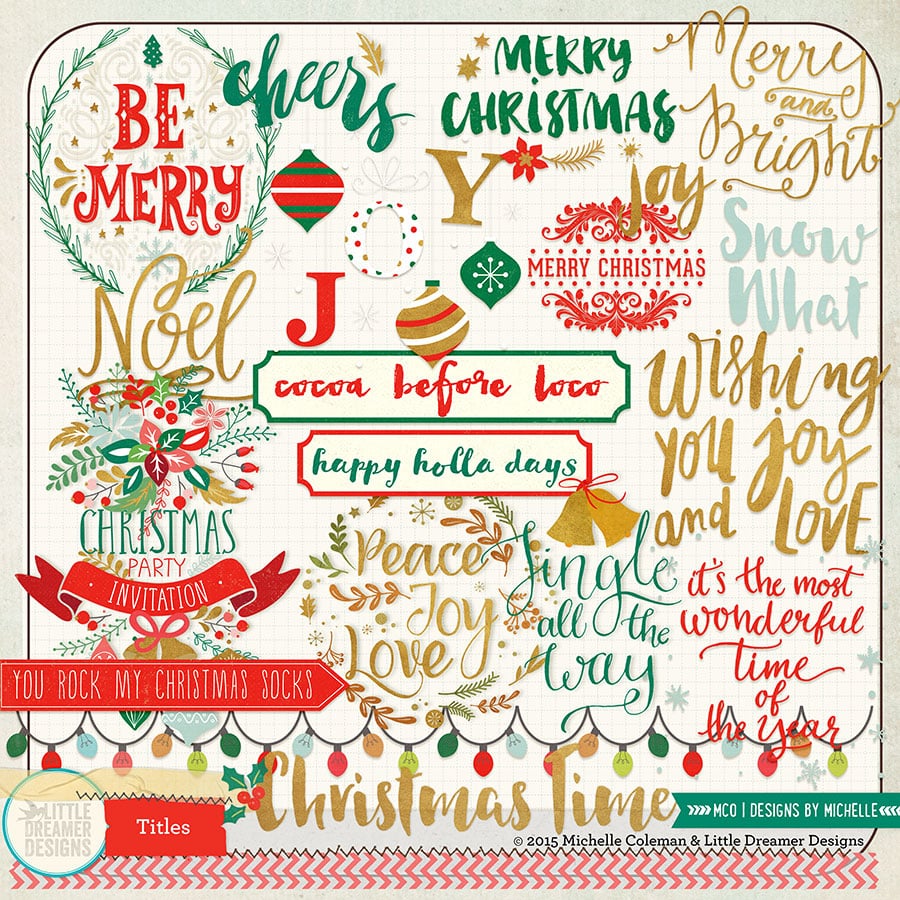 BE
MERRY
cheers
MERRY
CHRISTMAS
Merry
and
Bright
J
O
Y
joy
MERRY CHRISTMAS
Snow
What
Noel
cocoa before loco
happy holla days
Wishing
you joy
and LOVE
CHRISTMAS
PARTY
INVITATION
Peace
Joy
Love
Jingle
all the
way
it's the most
wonderful
time
of
the year
YOU ROCK MY CHRISTMAS SOCKS
Christmas Time
LITTLE
DREAMER
DESIGNS
Titles
MCO | DESIGNS BY MICHELLE
© 2015 Michelle Coleman & Little Dreamer Designs